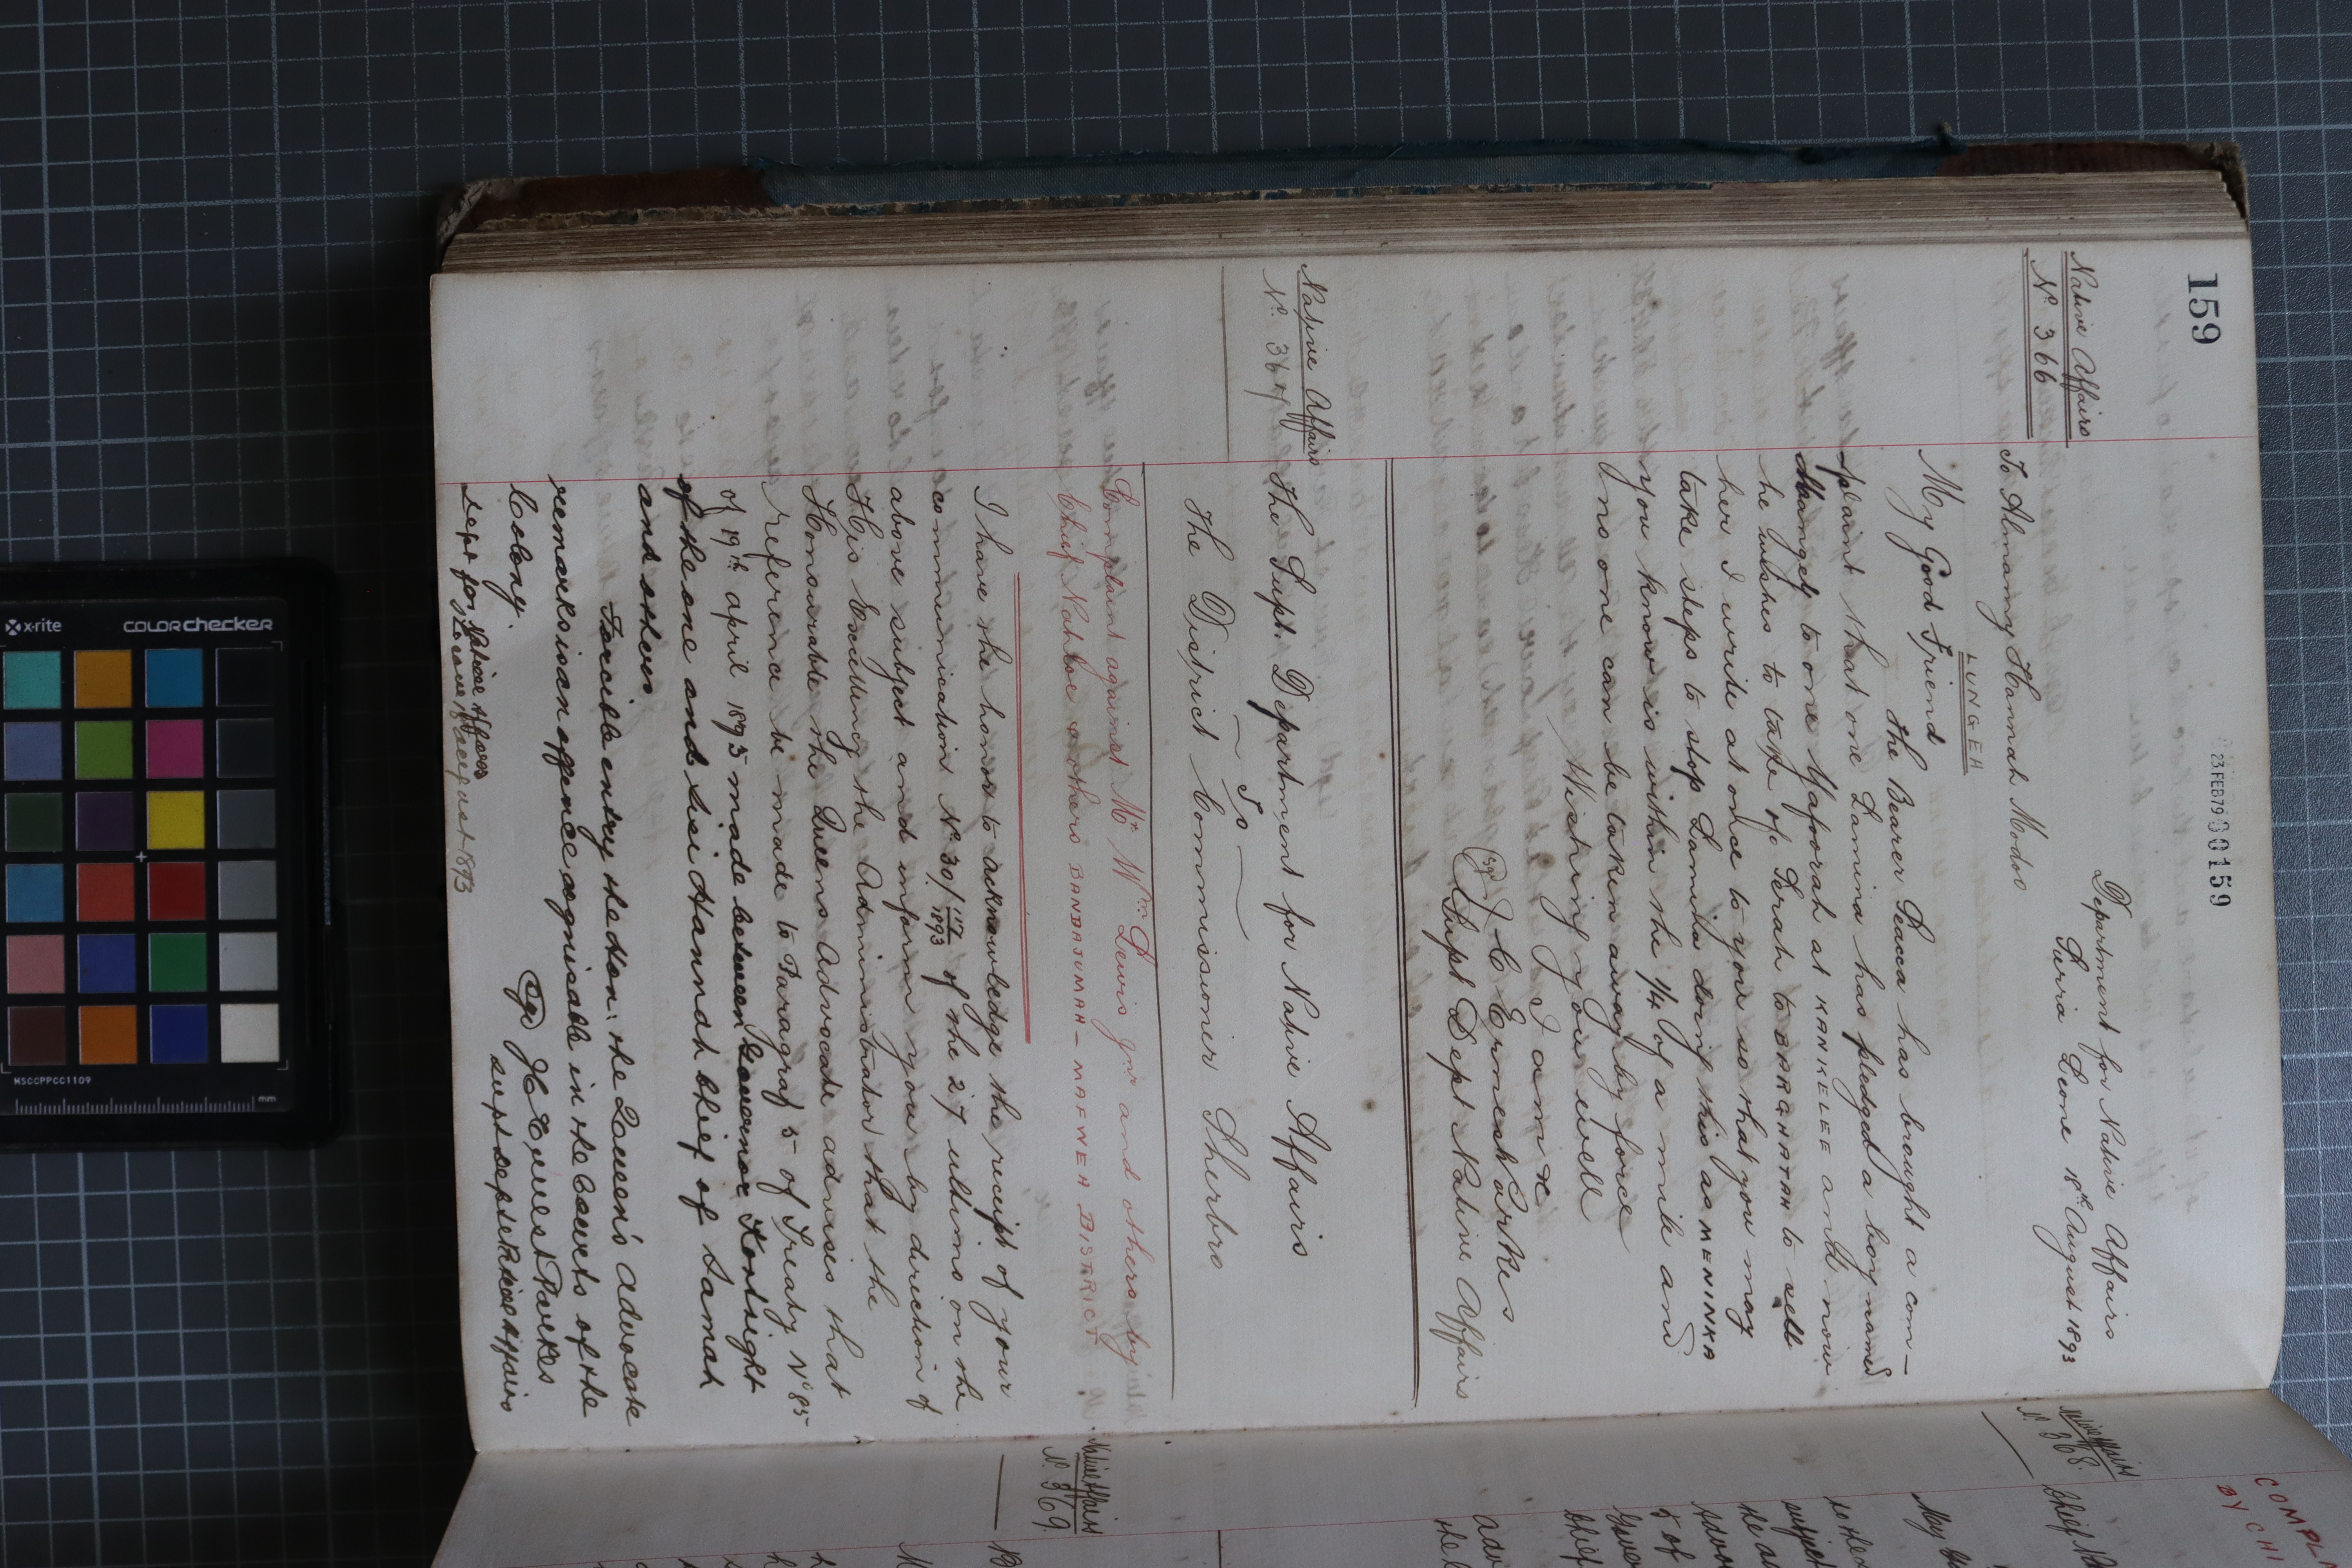 159
23 FEB 79 00159
Department for Native Affairs
Sierra Leone 18th August 1893
Native Affairs
No. 366
To Almamy Hannah Modoo
LUNGEH
My Good Friend
The Bearer Seacca has brought a com-
plaint that one Lamina has pledged a boy named
to one Yaforah at KANKELEE and now
he wishes to take of Serah to BARGAHTAH to sell
her I write at once to you so that you may
take steps to stop Lamina doing this as MENINKA
you know is within the 1/4 of a mile and
no one can be taken away by force
Wishing you well
I am &c
(Sgd) J C Ernest Parkes
Supt Dept Native Affairs
Native Affairs
No. 367
The Supt. Department for Native Affairs
To
The District Commissioner Sherbro
Complaint against Mr Wm Lewis Jnr and others by
Chief Nathbe others BANDAJUMAH - MAFWEH DISTRICT
I have the honor to acknowledge the receipt of your
communication No 30/117/1893 of the 27 ultimo on the
above subject and inform you by direction of
His Excellency the Administrator that the
Honourable the Queens Advocate advises that
reference be made to Paragraf 5 of Treaty No 85
of 19th april 1893 made between Governor
of the one and Sei Hannah chief of Samah
and others
Forcible entry the the Queen's advocate
remarks is an offence cognisable in the Courts of the
Colony.
(Sgd) J C Ernest Parkes
Supt Dept Native Affairs
Dept for Native Affairs
S Leone 18 August 1893
Native Affairs
No. 368
Chief
COMPL
BY CH
Native Affairs
No. 369